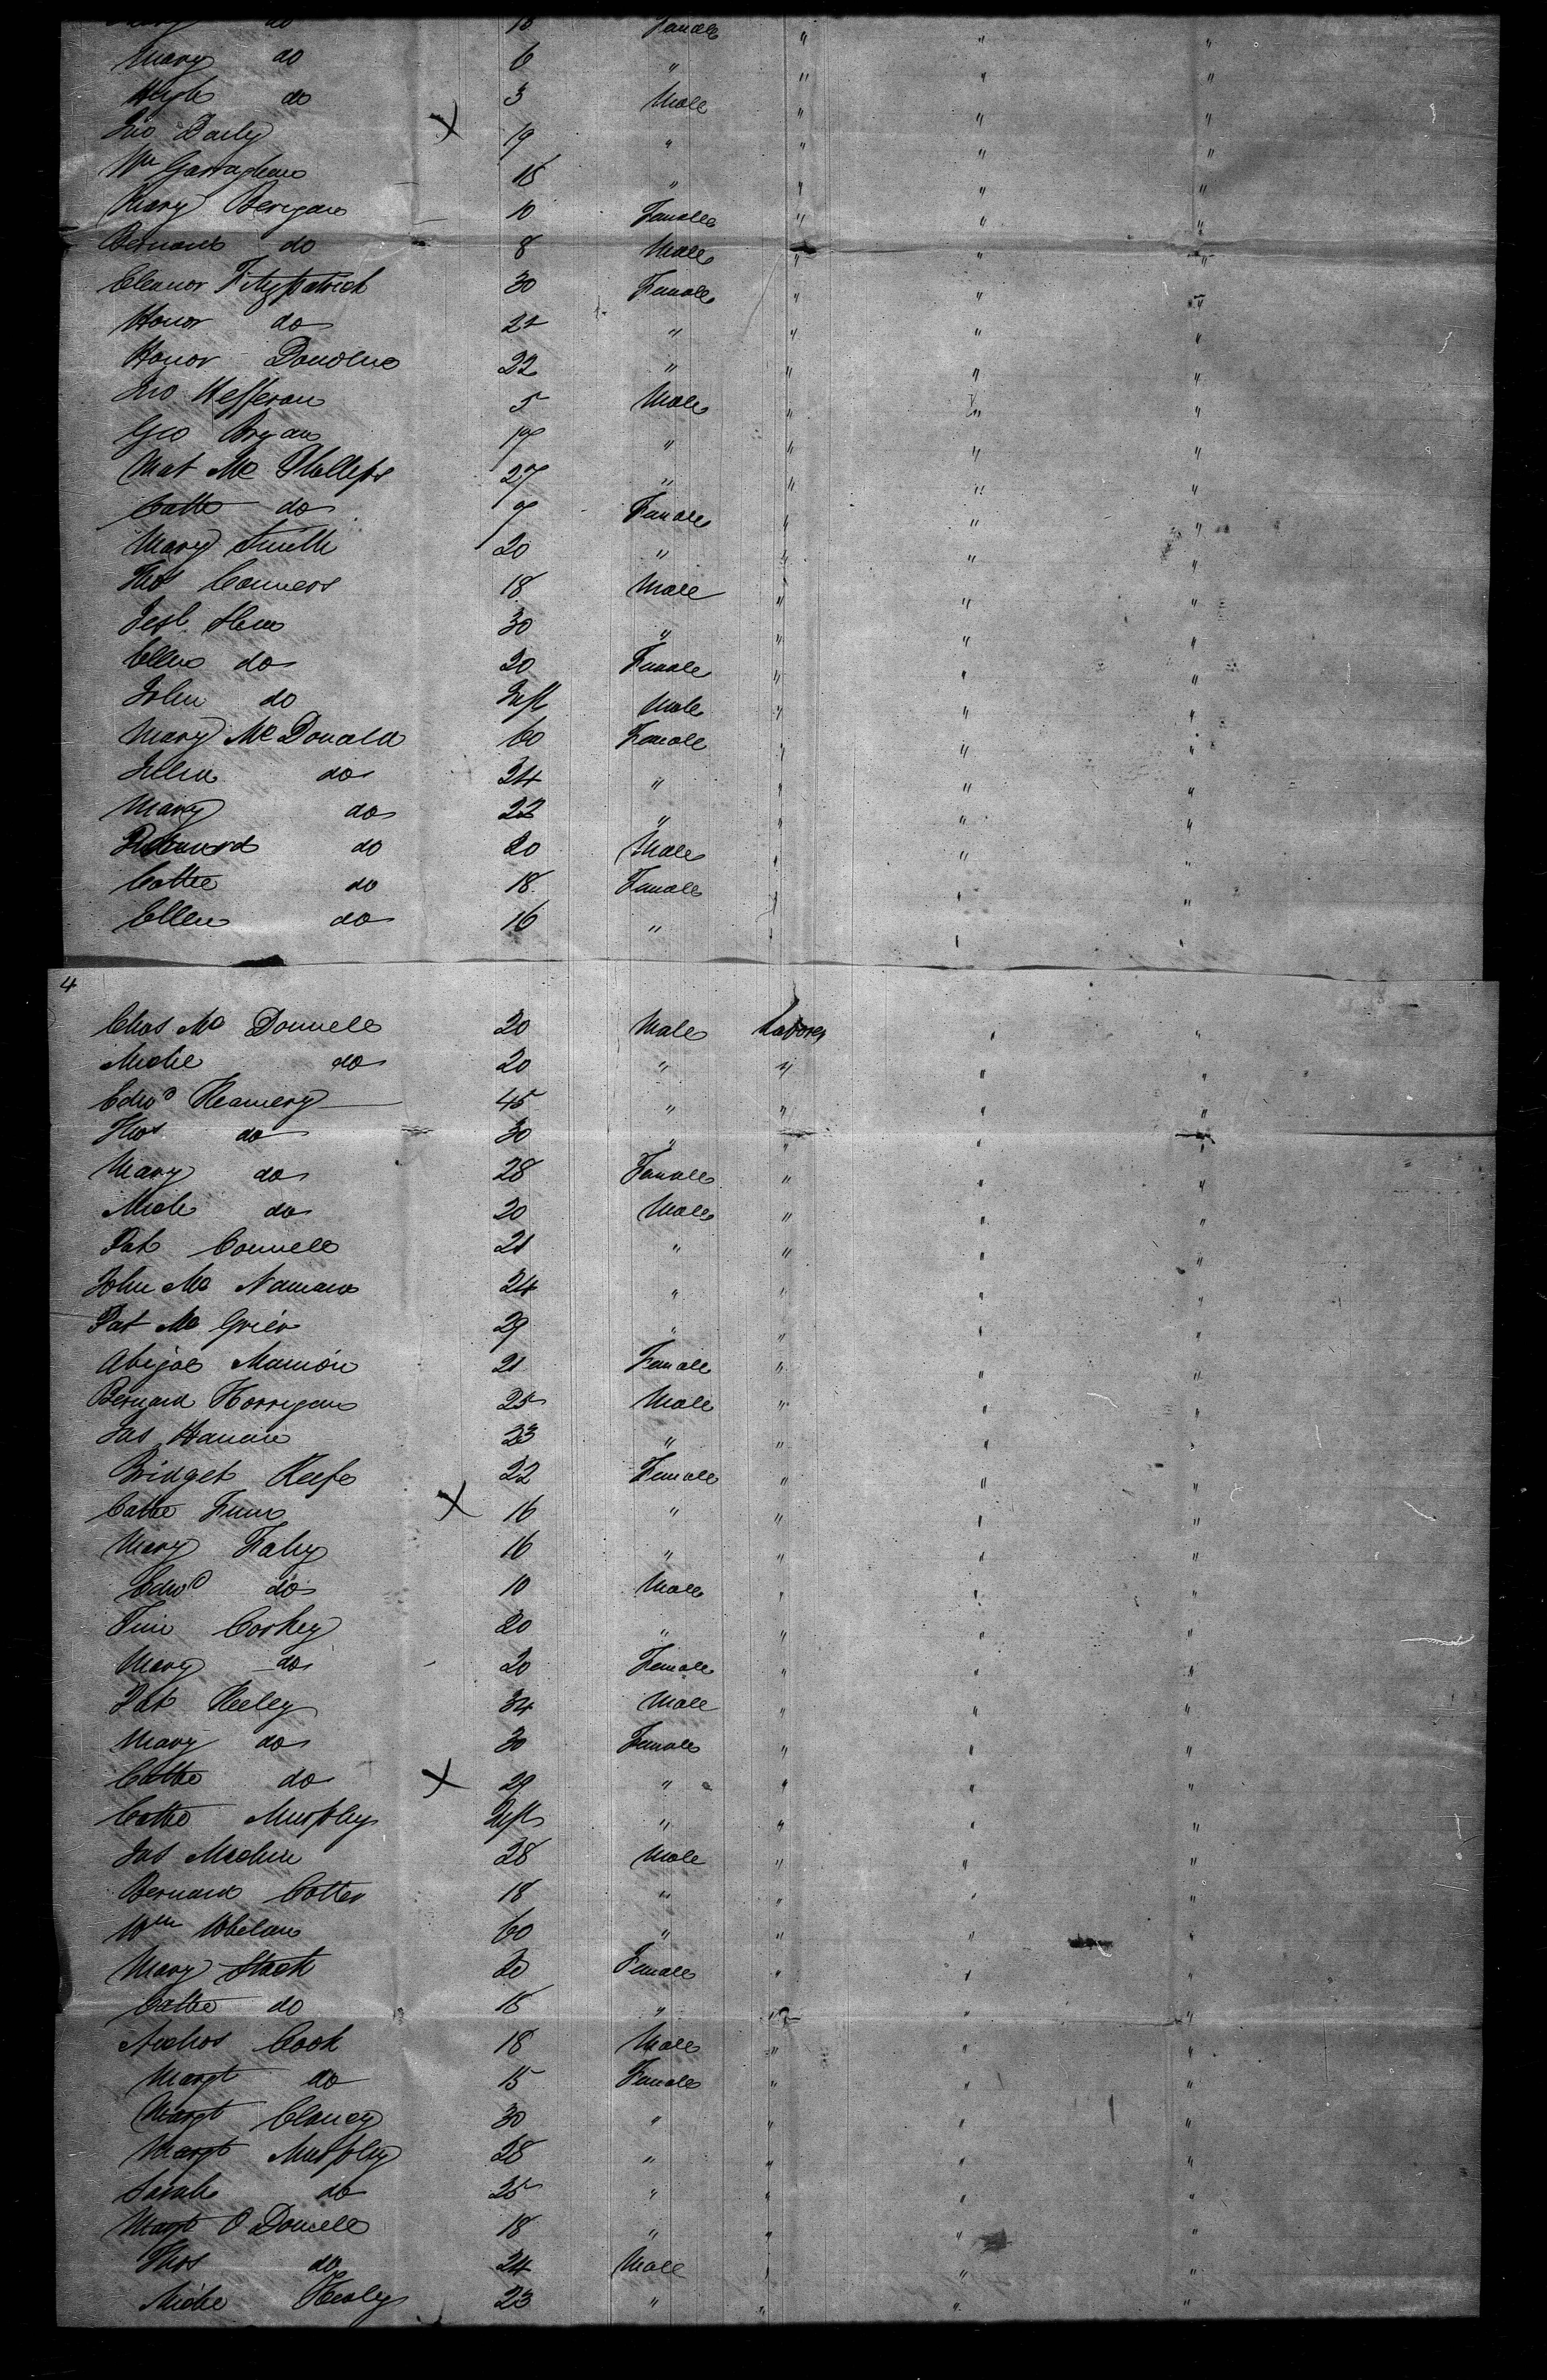 do 18 Female " " "
Mary do 6 " " " "
Hugh do 3 Male " " "
Jno Daily X 19 " " " "
Wm 18 " " " "
Mary Berigan 10 Female " " "
Bernard do 8 Male " " "
Eleanor Fitzpatrick 30 Female " " "
Honor do 22 " " " "
Honor 22 " " " "
Jno Hefferan 5 Male " " "
Geo Bryan 17 " " " "
Mat Mc Phillips 27 " " " "
Cathe do 7 Female " " "
Mary Smith 20 " " " "
Thos Conners 18 Male " " "
30 " " " "
Ellen do 20 Female " " "
John do Inft Male " " "
Mary Mc Donald 60 Female " " "
Julia do 24 " " " "
Mary do 22 " " " "
do 20 Male " " "
Cathe do 18 Female " " "
Ellen do 16 " " " "
4
Chas Mc Donnell 20 Male Laborer " "
Michl do 20 " " " "
Edwd Kearney 45 " " " "
Thos do 30 " " " "
Mary do 28 Female " " "
Michl do 20 Male " " "
Pat Connell 21 " " " "
John Mc Namara 24 " " " "
Pat Mc 29 " " " "
Abigal 21 Female " " "
Bernard Horrigan 25 Male " " "
Jas 23 " " " "
Bridget Keefe 22 Female " " "
Cathe Finn X 16 " " " "
Mary Fahy 16 " " " "
Edwd do 10 Male " " "
Tim Corkey 20 " " " "
Mary do 20 Female " " "
Pat Keeley 34 Male " " "
Mary do 30 Female " " "
Cathe do X 29 " " " "
Cathe Murphy Inft " " " "
Jas 28 Male " " "
Bernard Cotter 18 " " " "
Wm Whelan 60 " " " "
Mary Stack 20 Female " " "
Cathe do 18 " " " "
Nichos Cook 18 Male " " "
Margt do 15 Female " " "
Margt Clancy 30 " " " "
Margt Murphy 28 " " " "
Sarah do 25 " " " "
Margt O Donnell 18 " " " "
Thos do 24 Male " " "
Michl Healy 23 " " " "